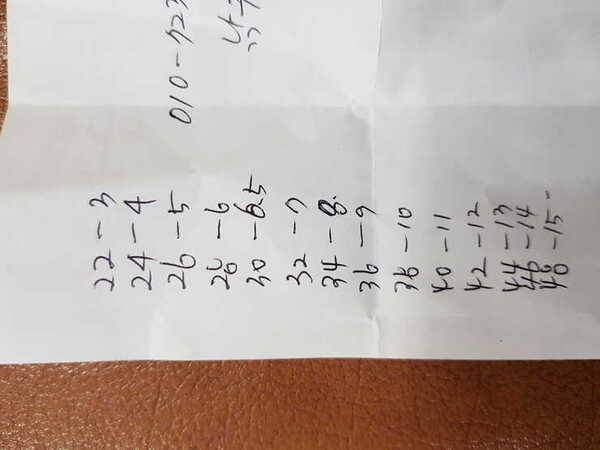 010-
22-3
24-4
26-5
28-6
30-6.5
32-7
34-8
36-9
38-10
40-11
42-12
44-13
46-14
48-15